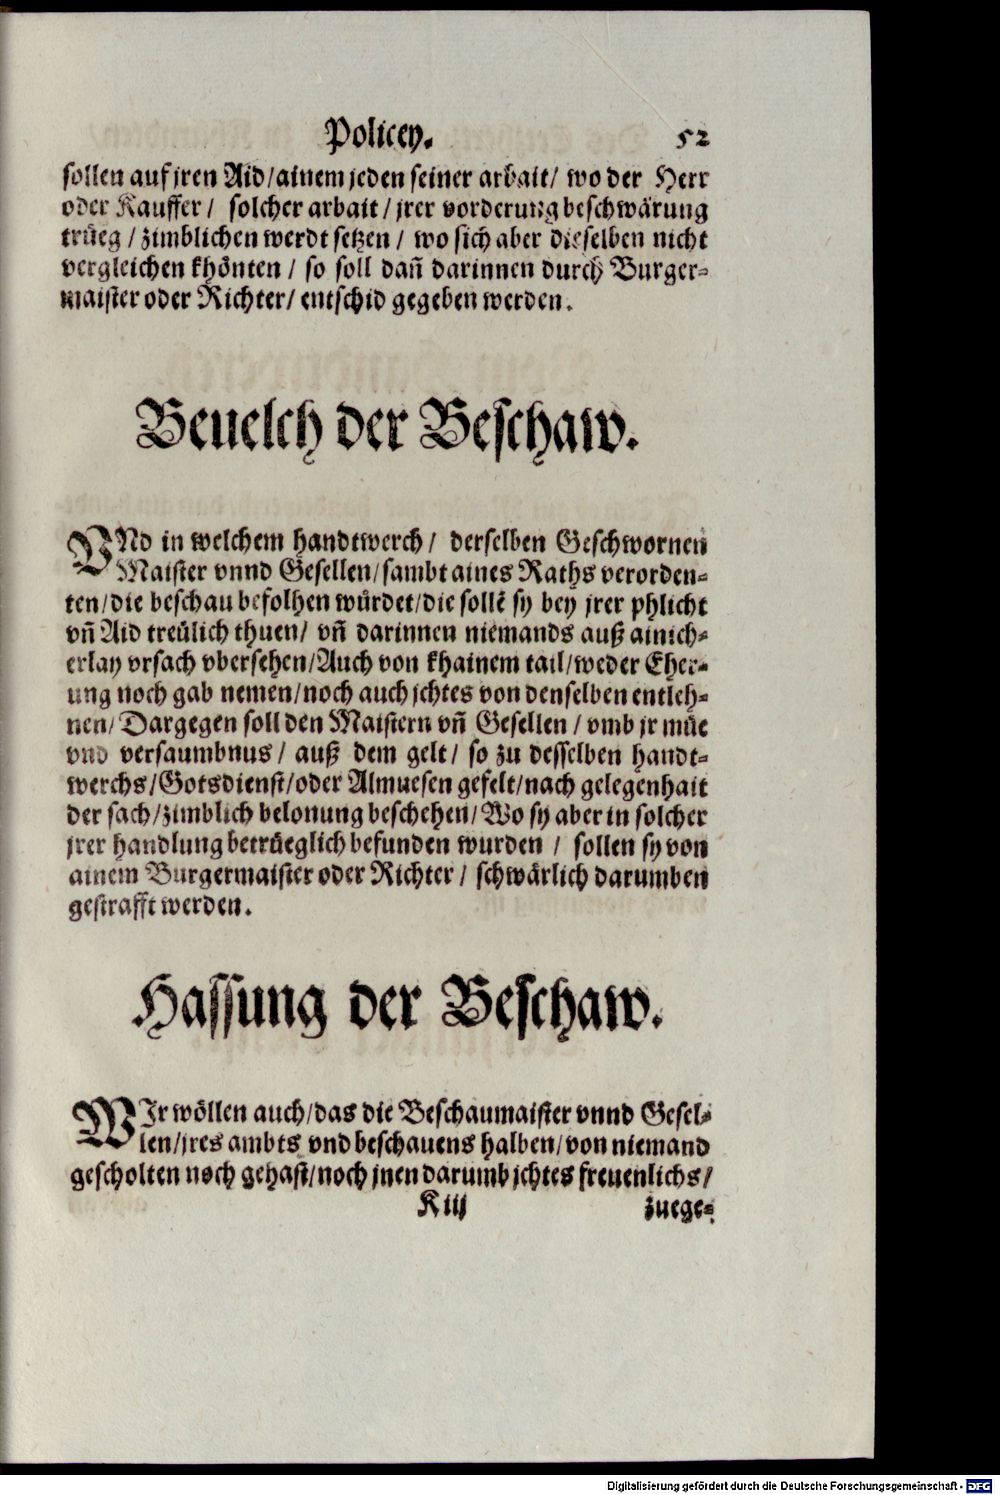 Policey. 52
sollen auf jren Aid/ainem jeden seiner arbait/ wo der Herr
oder Kauffer / solcher arbait / jrer vorderung beschwärung
trüeg / zimblichen werdt setzen / wo sich aber dieselben nicht
vergleichen khönten / so soll dañ darinnen durch Burger⸗
maister oder Richter/ entschid gegeben werden.
Beuelch der Beschaw.
VNd in welchem handtwerch / derselben Geschwornen
Maister vnnd Gesellen/sambt aines Raths verorden⸗
ten/die beschau befolhen würdet/die sollē sy bey jrer phlicht
vñ Aid treülich thuen/ vñ darinnen niemands auß ainich⸗
erlay vrsach vbersehen/Auch von khainem tail/weder Eher⸗
ung noch gab nemen/noch auch jchtes von denselben entleh⸗
nen/ Dargegen soll den Maistern vñ Gesellen / vmb jr müe
vnd versaumbnus / auß dem gelt/ so zu desselben handt⸗
werchs/Gotsdienst/oder Almuesen gefelt/nach gelegenhait
der sach/zimblich belonung beschehen/Wo sy aber in solcher
jrer handlung betrüeglich befunden wurden / sollen sy von
ainem Burgermaister oder Richter / schwärlich darumben
gestrafft werden.
Hassung der Beschaw.
WJr wöllen auch/das die Beschaumaister vnnd Gesel⸗
len/jres ambts vnd beschauens halben/von niemand
gescholten noch gehast/noch jnen darumb jchtes freuenlichs/
K iij zuege⸗
Digitalisierung gefördert durch die Deutsche Forschungsgemeinschaft - DFG